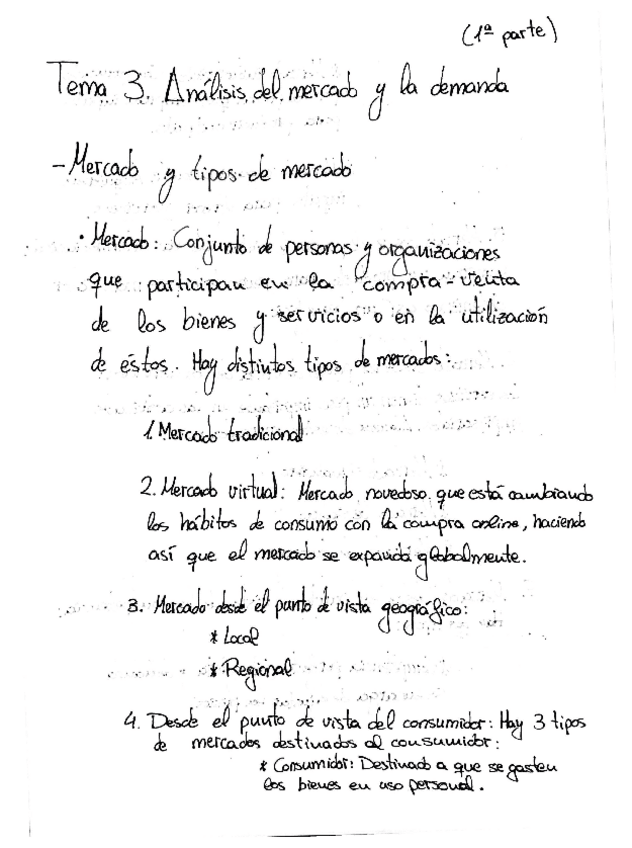 (1ª parte)
Tema 3. Análisis del mercado y la demanda
- Mercado y tipos de mercado
· Mercado: Conjunto de personas y organizaciones
que participan en la compra-venta
de los bienes y servicios o en la utilización
de éstos. Hay distintos tipos de mercados:
1. Mercado tradicional
2. Mercado virtual: Mercado novedoso que está cambiando
los hábitos de consumo con la compra online, haciendo
así que el mercado se expanda globalmente.
3. Mercado desde el punto de vista geográfico:
* Local
* Regional
4. Desde el punto de vista del consumidor: Hay 3 tipos
de mercados destinados al consumidor:
* Consumidor: Destinado a que se gasten
los bienes en uso personal.